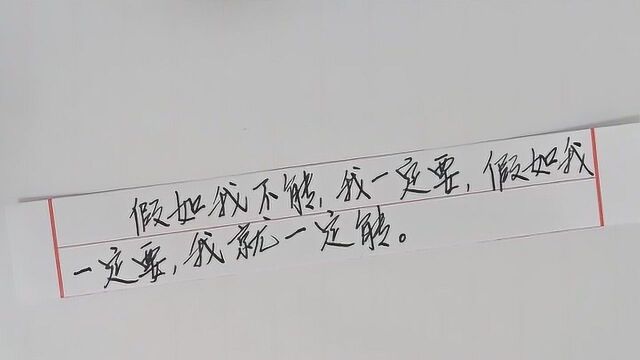 假如我不能,我一定要,假如我
一定要,我就一定能。